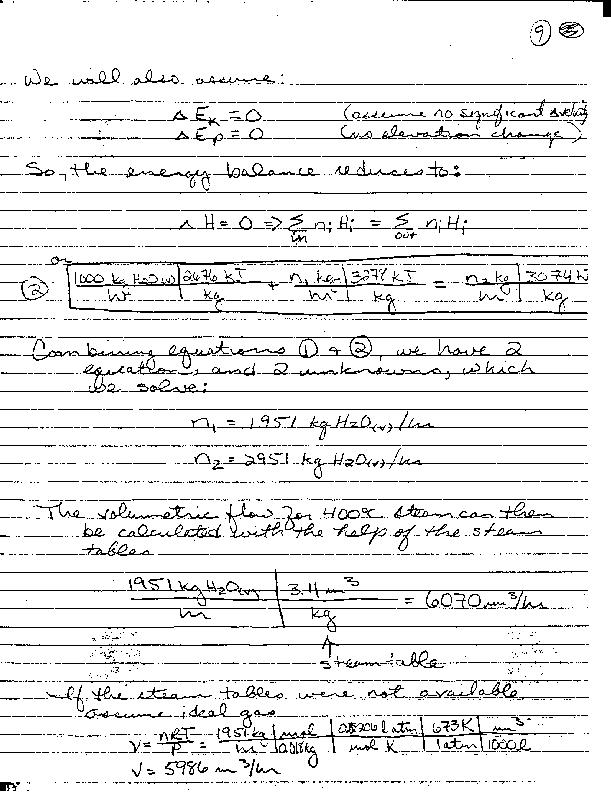 9
We will also assume:
ΔEk = 0 (assume no significant
ΔEp = 0 (no elevation change)
So, the energy balance reduces to:
ΔH = 0 => Σ in ni Hi = Σ out ni Hi
or
② 1000 kg H2O(v) / hr | 2676 kJ / kg + n1 kg / hr | 3278 kJ / kg = n2 kg / hr | 3074 kJ / kg
Combining equations ① + ②, we have 2
equations, and 2 unknowns, which
we solve:
n1 = 1951 kg H2O(v)/hr
n2 = 2951 kg H2O(v)/hr
The volumetric flow for 400°C steam can then
be calculated with the help of the steam
tables
1951 kg H2O(v) / hr | 3.11 m³ / kg = 6070 m³/hr
↑
steam table
If the steam tables were not available
assume ideal gas
V = nRT / P = 1951 kg / hr | mol / 0.018 kg | 0.08206 l atm / mol K | 673 K / 1 atm | m³ / 1000 l
V = 5986 m³/hr